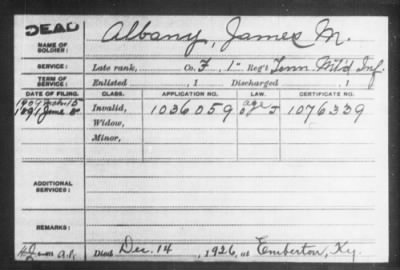 DEAD
NAME OF SOLDIER: Albany, James M.
SERVICE: Late rank, Co. F, 1" Reg't Tenn Mt'd Inf.
TERM OF SERVICE: Enlisted , 1 Discharged , 1
DATE OF FILING. CLASS. APPLICATION NO. LAW. CERTIFICATE NO.
Invalid, 1036059 age 1076339
Widow,
Minor,
ADDITIONAL SERVICES:
REMARKS:
Died Dec. 14, 1926, at Emberton, Ky.